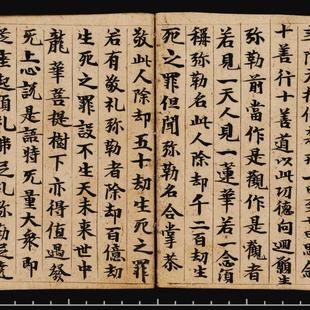 十善行十善道以此功德向迴願生
弥勒前當作是觀作是觀者
若見一天人見一蓮華若一念須
稱弥勒名此人除却千二百劫生
死之罪但聞弥勒名合掌恭
敬此人除却五十劫生死之罪
若有敬礼弥勒者除却百億劫
生死之罪設不生天未來世中
龍華菩提樹下亦得值遇發
无上心說是語時无量大衆即
座起頂礼佛足礼弥勒足